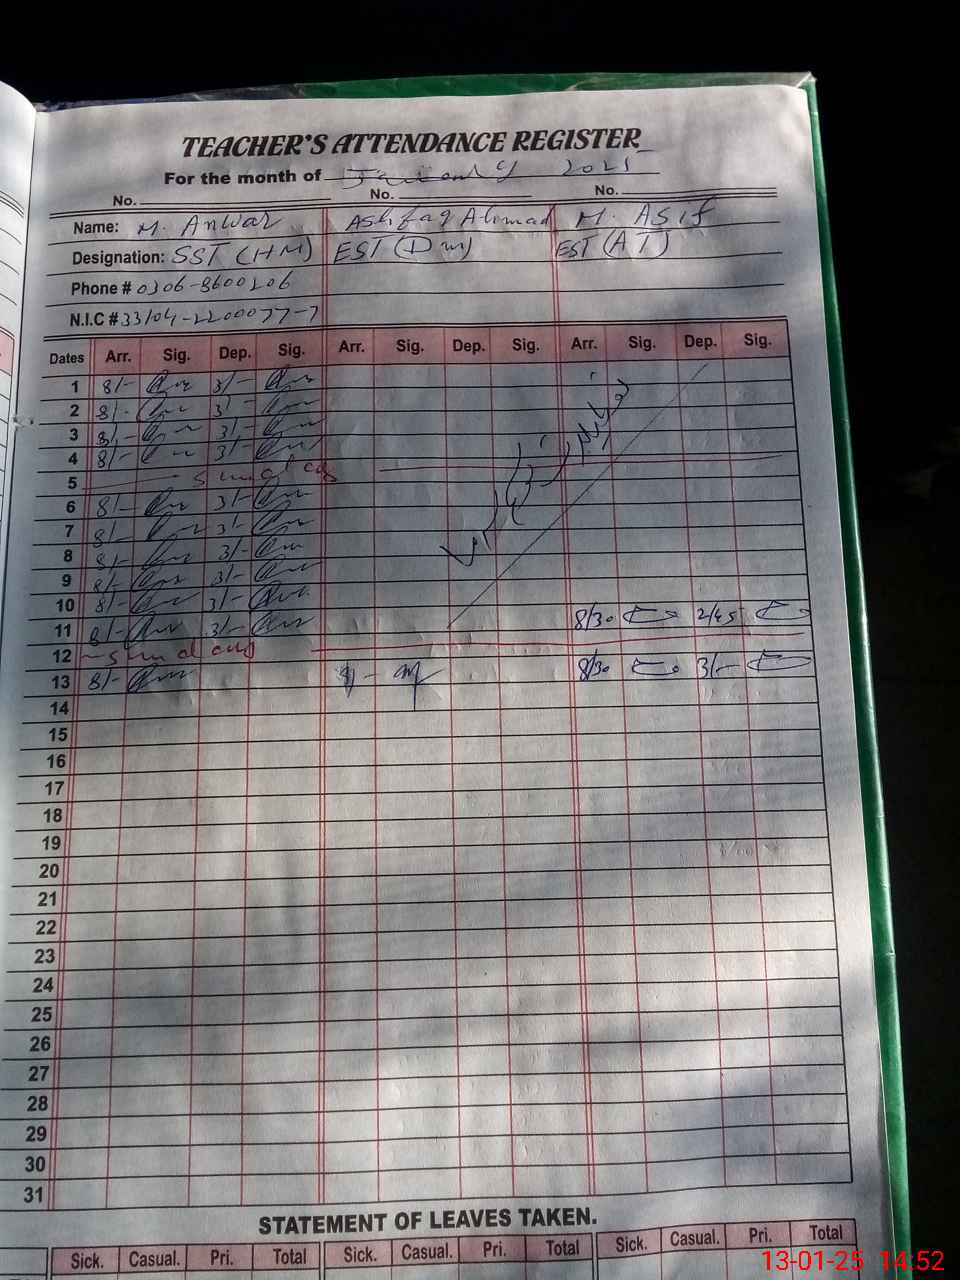 TEACHER'S ATTENDANCE REGISTER
For the month of January 2025
No. No. No.
Name: M. Anwar Ashfaq Ahmad M. Asif
Designation: SST (HM) EST (Dm) EST (AT)
Phone # 0306-8600206
N.I.C # 33104-2200077-7
Dates Arr. Sig. Dep. Sig. Arr. Sig. Dep. Sig. Arr. Sig. Dep. Sig.
1 8/- 3/-
2 8/- 3/-
3 8/- 3/-
4 8/- 3/-
5 Sunday
6 8/- 3/-
7 8/- 3/-
8 8/- 3/-
9 8/- 3/-
10 8/- 3/-
11 8/- 3/- 8/30 2/45
12 Sunday
13 8/- 8/- 8/30 3/-
14
15
16
17
18
19
20
21
22
23
24
25
26
27
28
29
30
31
STATEMENT OF LEAVES TAKEN.
Sick. Casual. Pri. Total Sick. Casual. Pri. Total Sick. Casual. Pri. Total
13-01-25 14:52